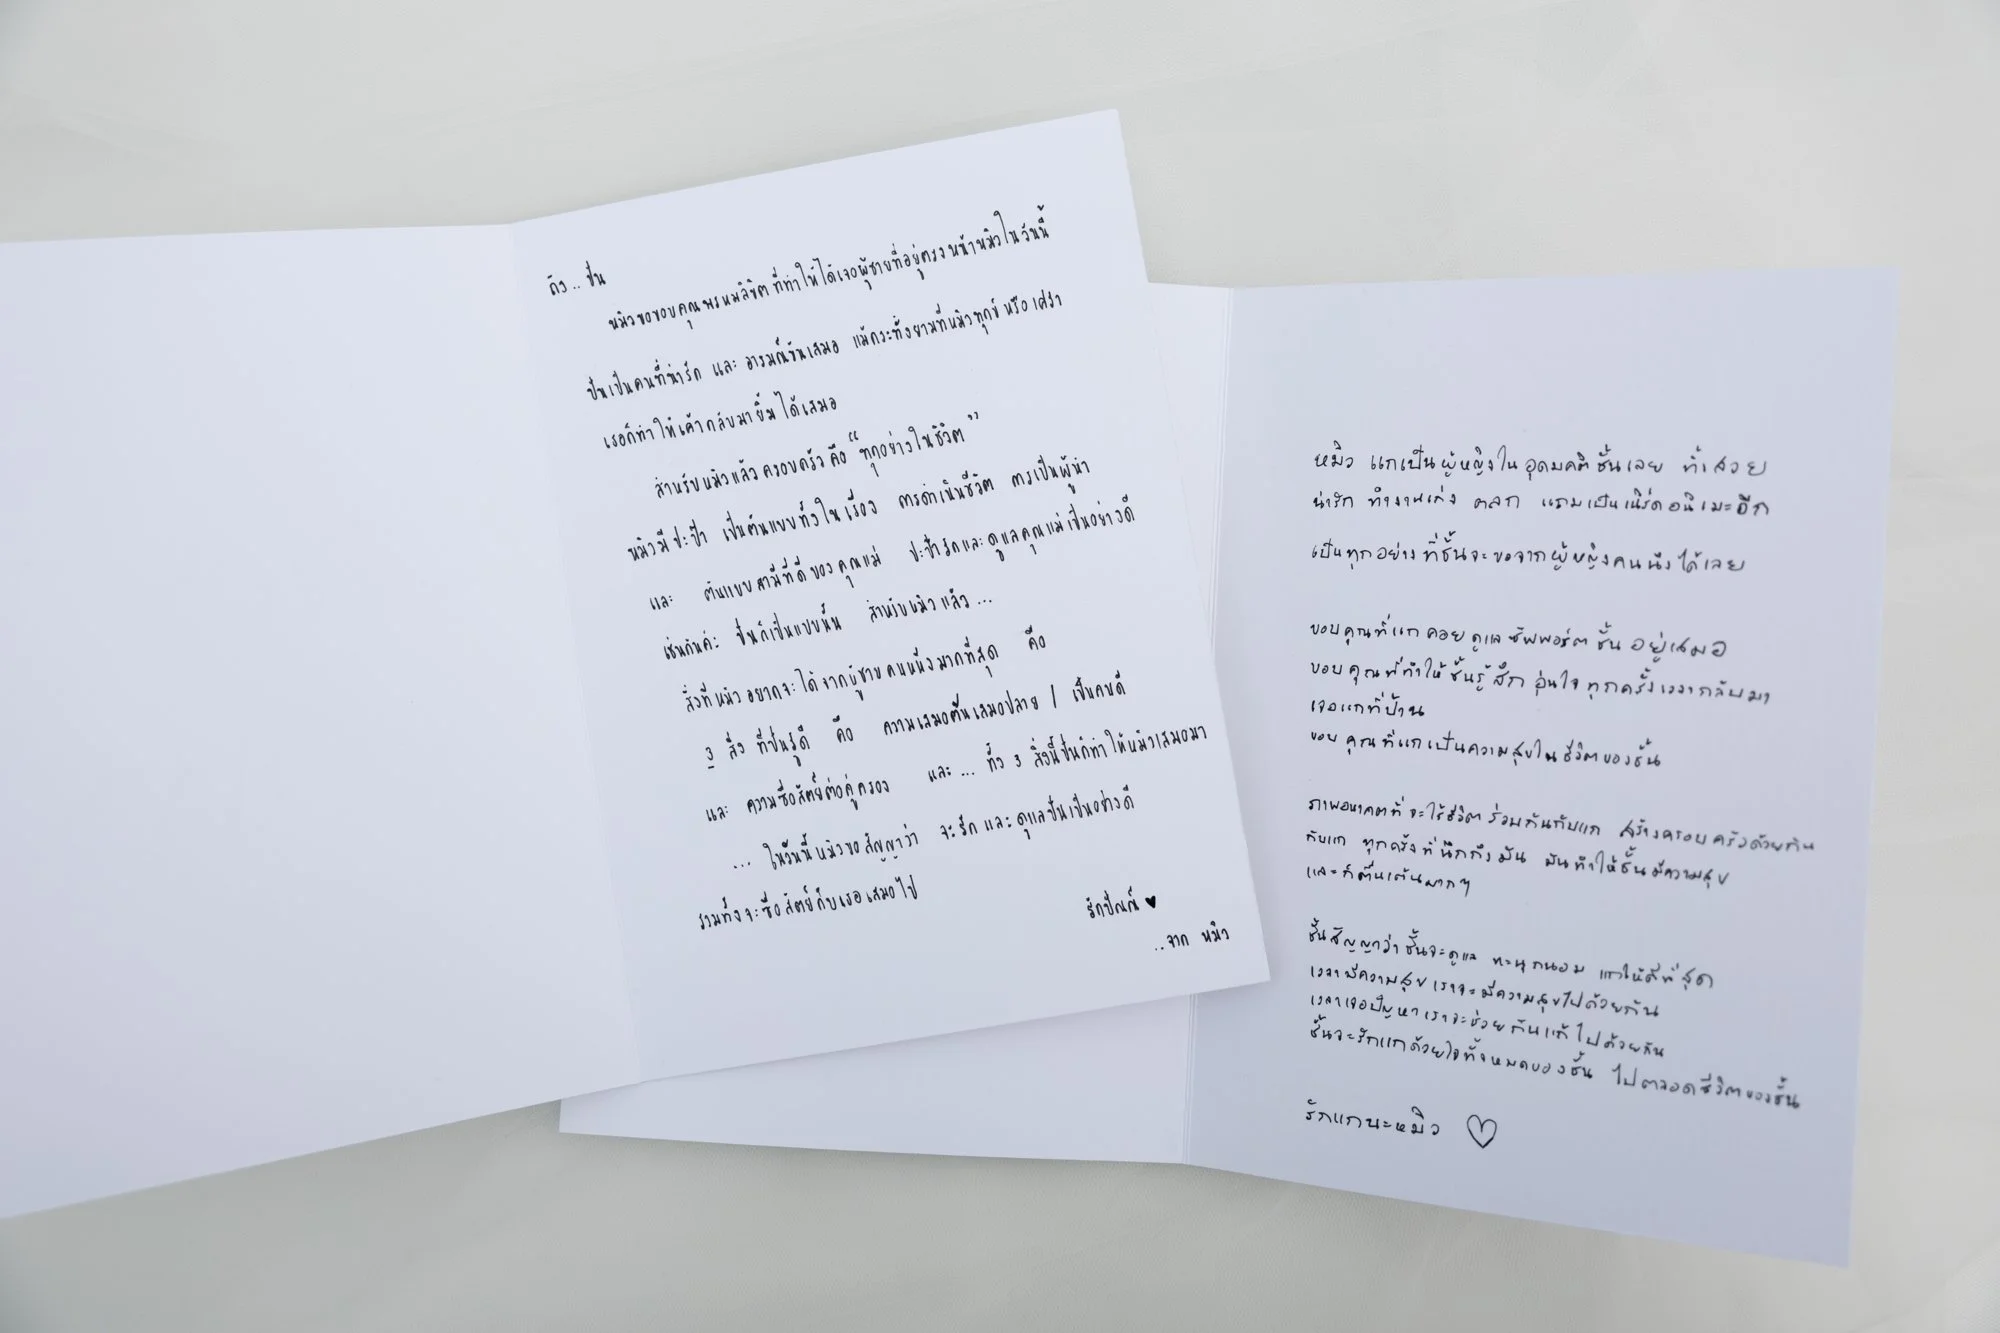 ถึง .. ปั่น
หมิวขอขอบคุณพรหมลิขิต ที่ทำให้ได้เจอผู้ชายที่อยู่ตรงหน้าหมิวในวันนี้
ปั่นเป็นคนที่น่ารัก และ อารมณ์ขันเสมอ แม้กระทั่งยามที่หมิวทุกข์ หรือ เศร้า
เธอก็ทำให้เค้ากลับมายิ้มได้เสมอ
สำหรับหมิวแล้ว ครอบครัว คือ "ทุกอย่างในชีวิต"
หมิวมีปะป๊า เป็นต้นแบบทั้งในเรื่อง การดำเนินชีวิต การเป็นผู้นำ
และ ต้นแบบสามีที่ดีของคุณแม่ ปะป๊ารักและดูแลคุณแม่เป็นอย่างดี
เช่นกันค่ะ ปั่นก็เป็นแบบนั้น สำหรับหมิวแล้ว ...
สิ่งที่หมิวอยากจะได้จากผู้ชายคนหนึ่งมากที่สุด คือ
3 สิ่ง ที่ปั่นรู้ดี คือ ความเสมอต้นเสมอปลาย / เป็นคนดี
และ ความซื่อสัตย์ต่อคู่ครอง และ ... ทั้ง 3 สิ่งนี้ปั่นก็ทำให้หมิวเสมอมา
... ในวันนี้หมิวขอสัญญาว่า จะรัก และ ดูแลปั่นเป็นอย่างดี
รวมทั้งจะซื่อสัตย์กับเธอเสมอไป
รักปัณณ์ ♥
..จาก หมิว
หมิว แกเป็นผู้หญิงในอุดมคติชั้นเลย ทั้งสวย
น่ารัก ทำงานเก่ง ตลก แถมเป็นเนิร์ดอนิเมะอีก
เป็นทุกอย่างที่ชั้นจะขอจากผู้หญิงคนนึงได้เลย
ขอบคุณที่แกคอยดูแลซัพพอร์ตชั้นอยู่เสมอ
ขอบคุณที่ทำให้ชั้นรู้สึกอุ่นใจทุกครั้งเวลากลับมา
เจอแกที่บ้าน
ขอบคุณที่แกเป็นความสุขในชีวิตของชั้น
ภาพอนาคตที่จะใช้ชีวิตร่วมกันกับแก สร้างครอบครัวด้วยกัน
กับแก ทุกครั้งที่นึกถึงมัน มันทำให้ชั้นมีความสุข
และก็ตื่นเต้นมากๆ
ชั้นสัญญาว่าชั้นจะดูแล ทะนุถนอม แกให้ดีที่สุด
เวลามีความสุขเราจะมีความสุขไปด้วยกัน
เวลาเจอปัญหาเราจะช่วยกันแก้ไปด้วยกัน
ชั้นจะรักแกด้วยใจทั้งหมดของชั้น ไปตลอดชีวิตของชั้น
รักแกนะหมิว ♡